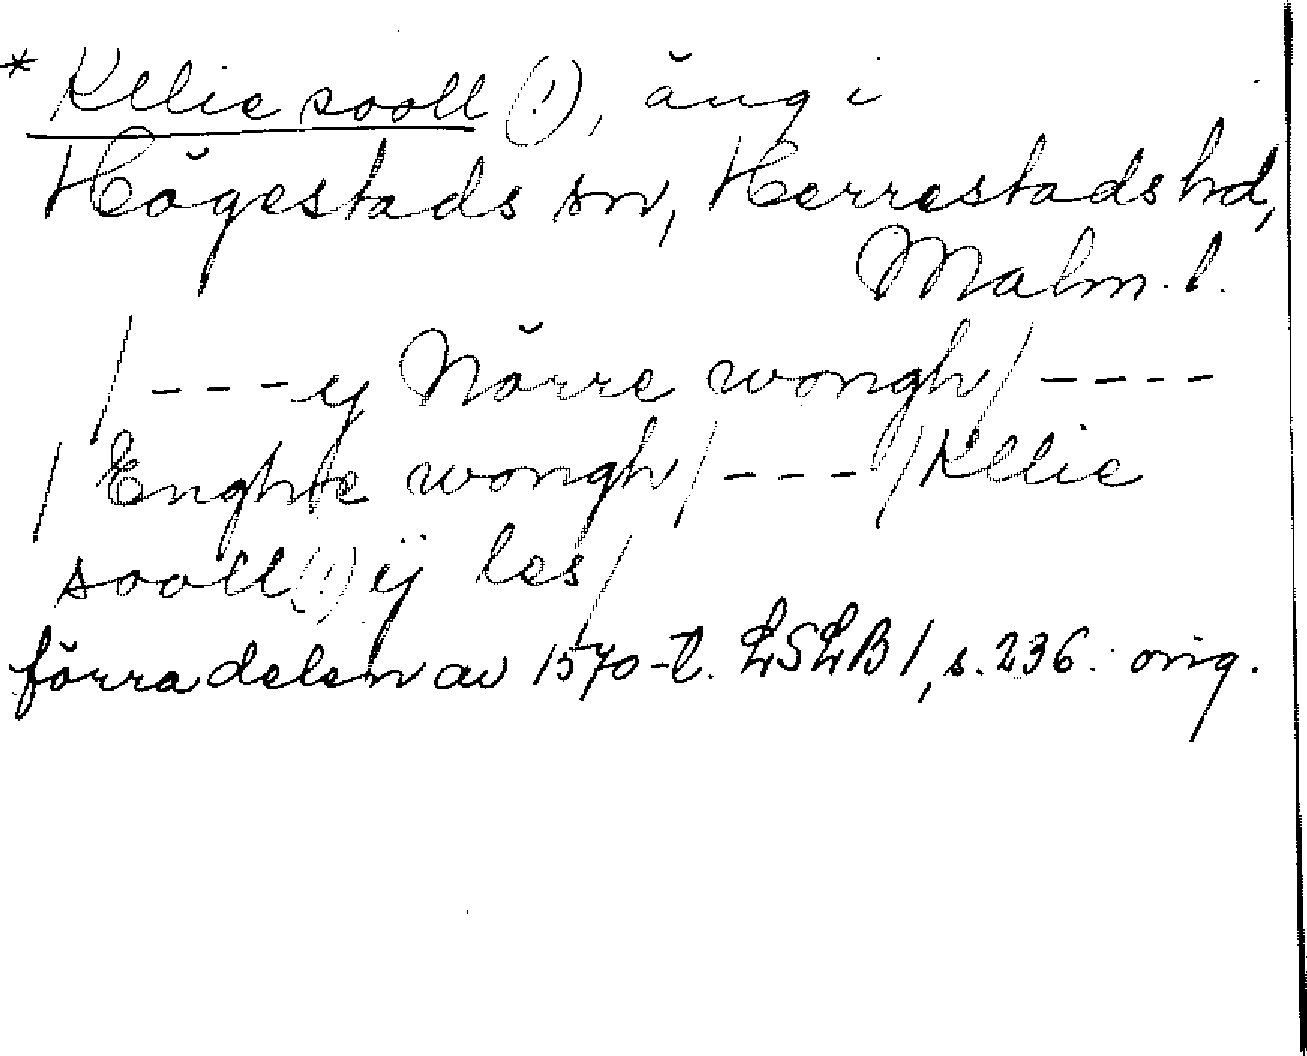 * Kllie sooll (!), äng i
Högestads sn, Herrestads hd,
Malm. l.
/ - - - y Nörre wongh / - - - -
/ Enghe wongh / - - - / Kllie
sooll (!) ij les /
förra delen av 1570-t. LSLB 1, s. 236. orig.